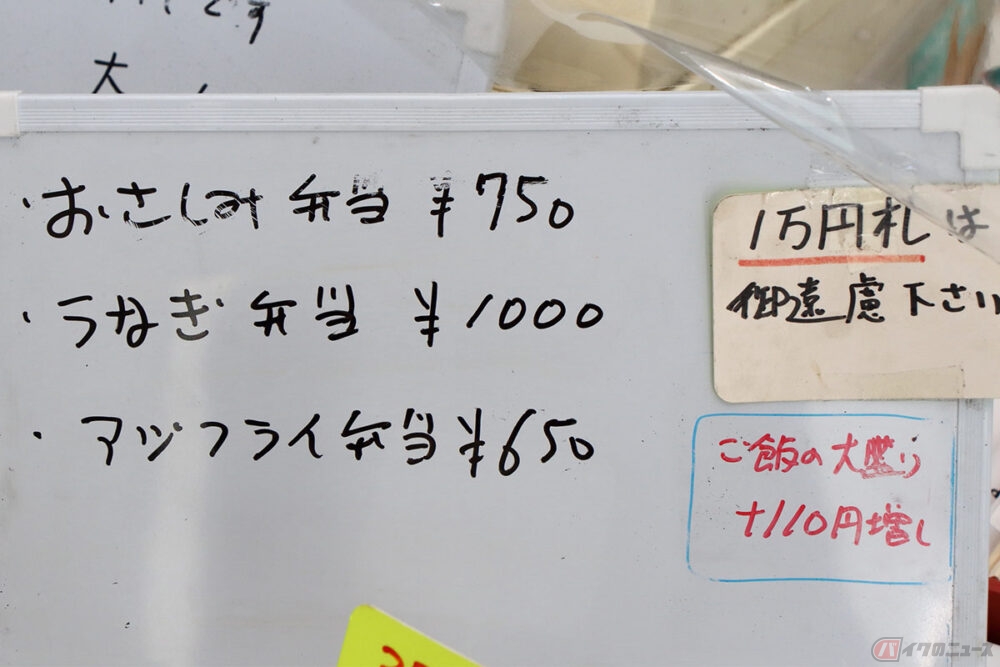 です
大
・おさしみ弁当 ¥750
・うなぎ弁当 ¥1000
・アジフライ弁当 ¥650
1万円札は
御遠慮下さい
ご飯の大盛り
+110円増し
バイクのニュース